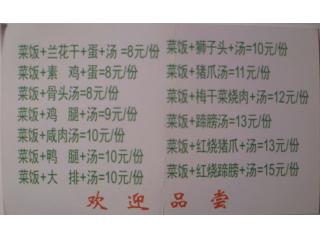 菜饭+兰花干+蛋+汤 =8元/份
菜饭+素 鸡+蛋=8元/份
菜饭+骨头汤=8元/份
菜饭+鸡 腿+汤=9元/份
菜饭+咸肉汤=10元/份
菜饭+鸭 腿+汤=10元/份
菜饭+大 排+汤=10元/份
菜饭+狮子头+汤=10元/份
菜饭+猪爪汤=11元/份
菜饭+梅干菜烧肉+汤=12元/份
菜饭+蹄膀汤=13元/份
菜饭+红烧猪爪+汤=13元/份
菜饭+红烧蹄膀+汤=15元/份
欢迎品尝